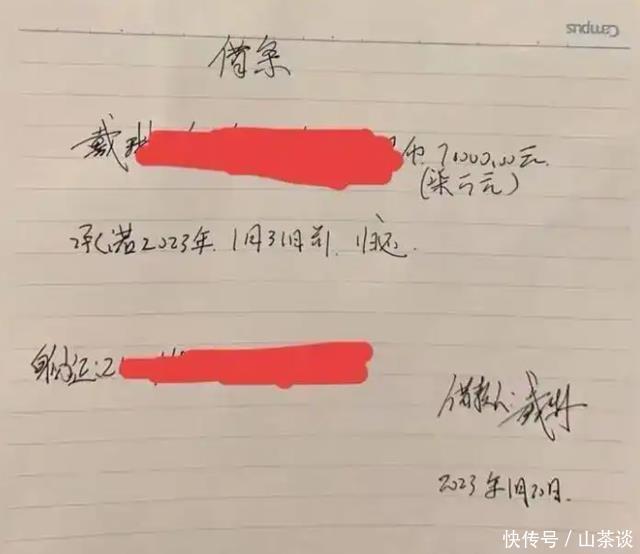 Campus
借条
戴 币71000.00元
(柒万元)
承诺2023年.1月31日前.归还.
身份证:2
借款人:戴
2023年1月20日.
快传号/山茶谈